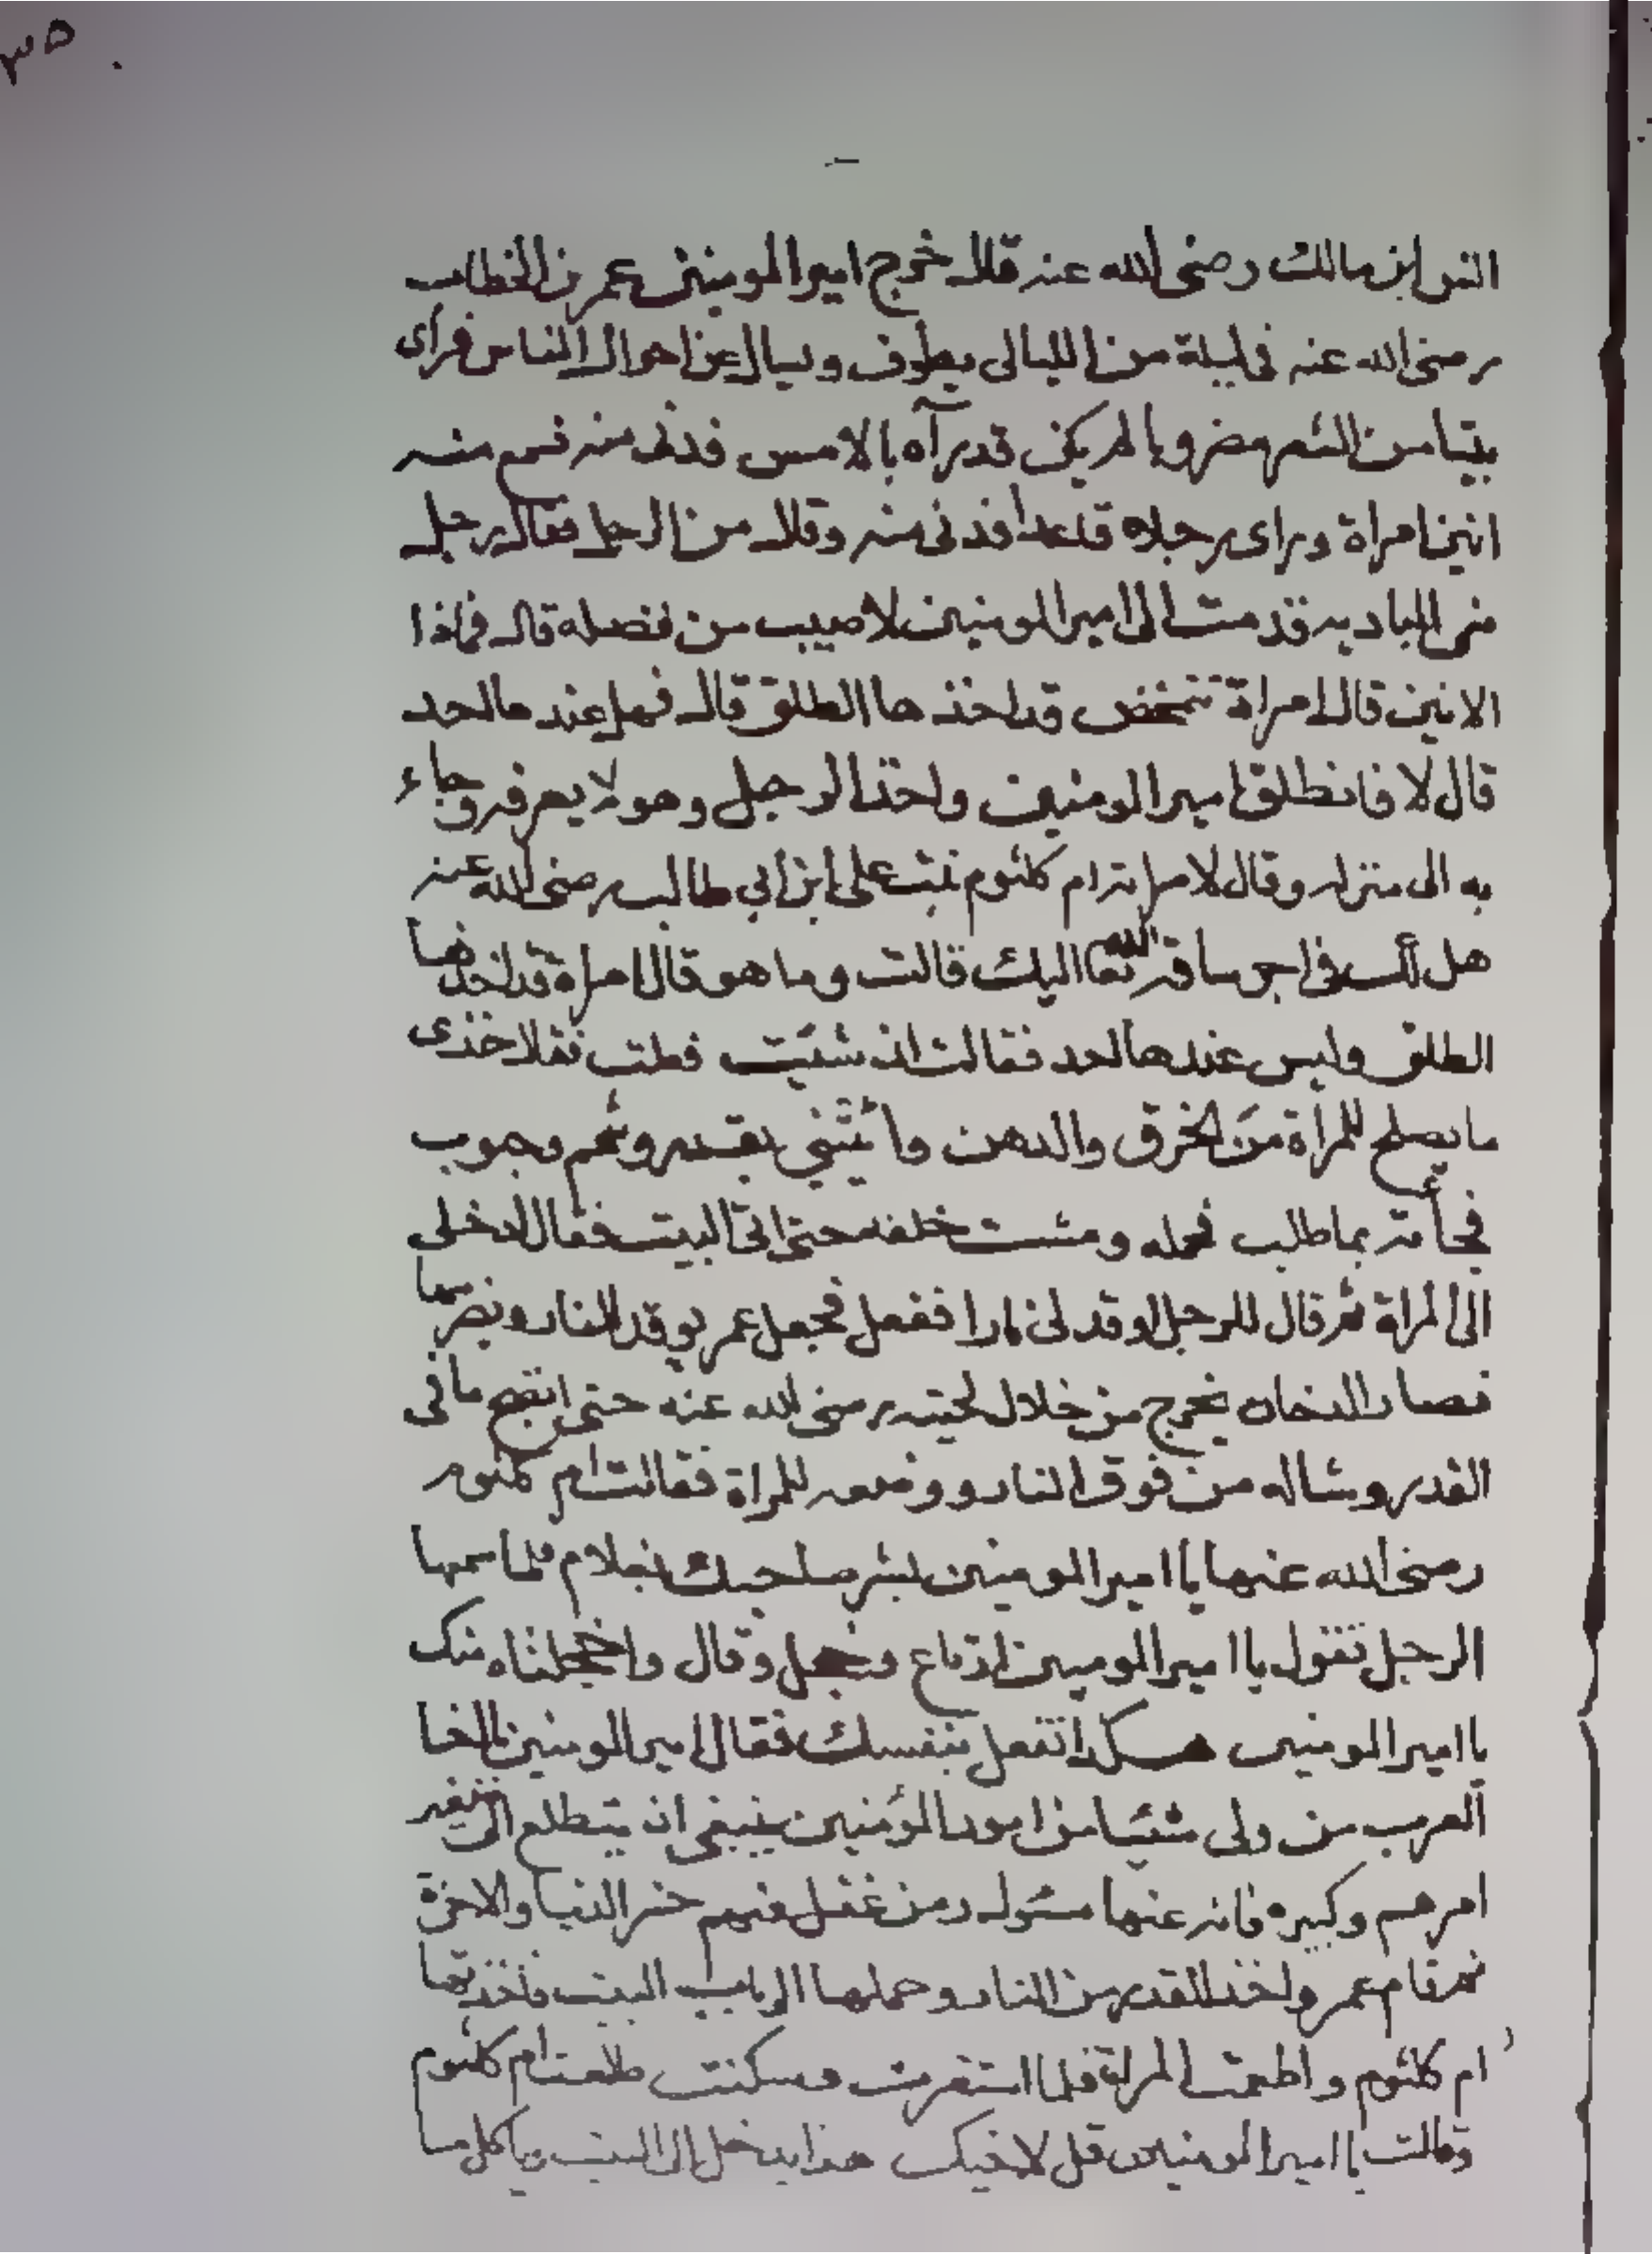 ٣٥
انس ابن مالك رضى الله عنه قال خرج امير المومنين عمر بن الخطاب
رضى الله عنه فى ليلة من الليالى يطوف ويسال عن احوال الناس فرأى
بيتا من الشعر مضروبا لم يكن قد رآه بالامس فدنى منه فسمع منه
انين امراة وراى رجلا قاعدا فدنى منه وقال من الرجل فقال رجل
من البادية قدمت الى امير المومنين لاصيب من فضله قال فما هذا
الانين قال امراة تتمخض قد اخذها الطلق قال فهل عندها احد
قال لا فانطلق امير المومنين واخذ الرجل وهو لا يعرفه وجاء
به الى منزله وقال لامراته ام كلثوم بنت على ابن أبي طالب رضى الله عنه
هل لك فى اجر ساقه الله تعا اليك قالت وما هو قال امراة قد اخذها
الطلق وليس عندها احد فقالت ان شئت فقال خذى
ما يصلح للمرأة من الخرق والدهن وائتيني بقدر وشحم وحبوب
فجأته بما طلب فحمله ومشت خلفه حتى اتى البيت فقال ادخلى
الى المراة ثم قال للرجل اوقد لى نارا ففعل فجعل عمر يوقد النار ويضرمها
فصار الدخان يخرج من خلال لحيته رضى الله عنه حتى انضج ما فى
القدر وشاله من فوق النار ووضعه للمراة فقالت ام كلثوم
رضى الله عنها يا امير المومنين بشر صاحبك بغلام فلما سمعها
الرجل تقول يا امير المومنين ارتاع وخجل وقال واخجلتاه منك
يا امير المومنين هكذا تفعل بنفسك فقال امير المومنين يا اخا
العرب من ولى شيئا من امور المؤمنين ينبغى ان يتطلع الى صغير
امرهم وكبيره فانه عنها مسئول ومن غفل عنهم خسر الدنيا والاخرة
ثم قام عمر واخذ القدر من النار وحملها الى باب البيت فاخذتها
ام كلثوم واطعمت المراة فلما استقرت وسكنت طلعت ام كلثوم
وقالت يا امير المومنين قل لاخيك هذا يدخل الى البيت وياكل ما